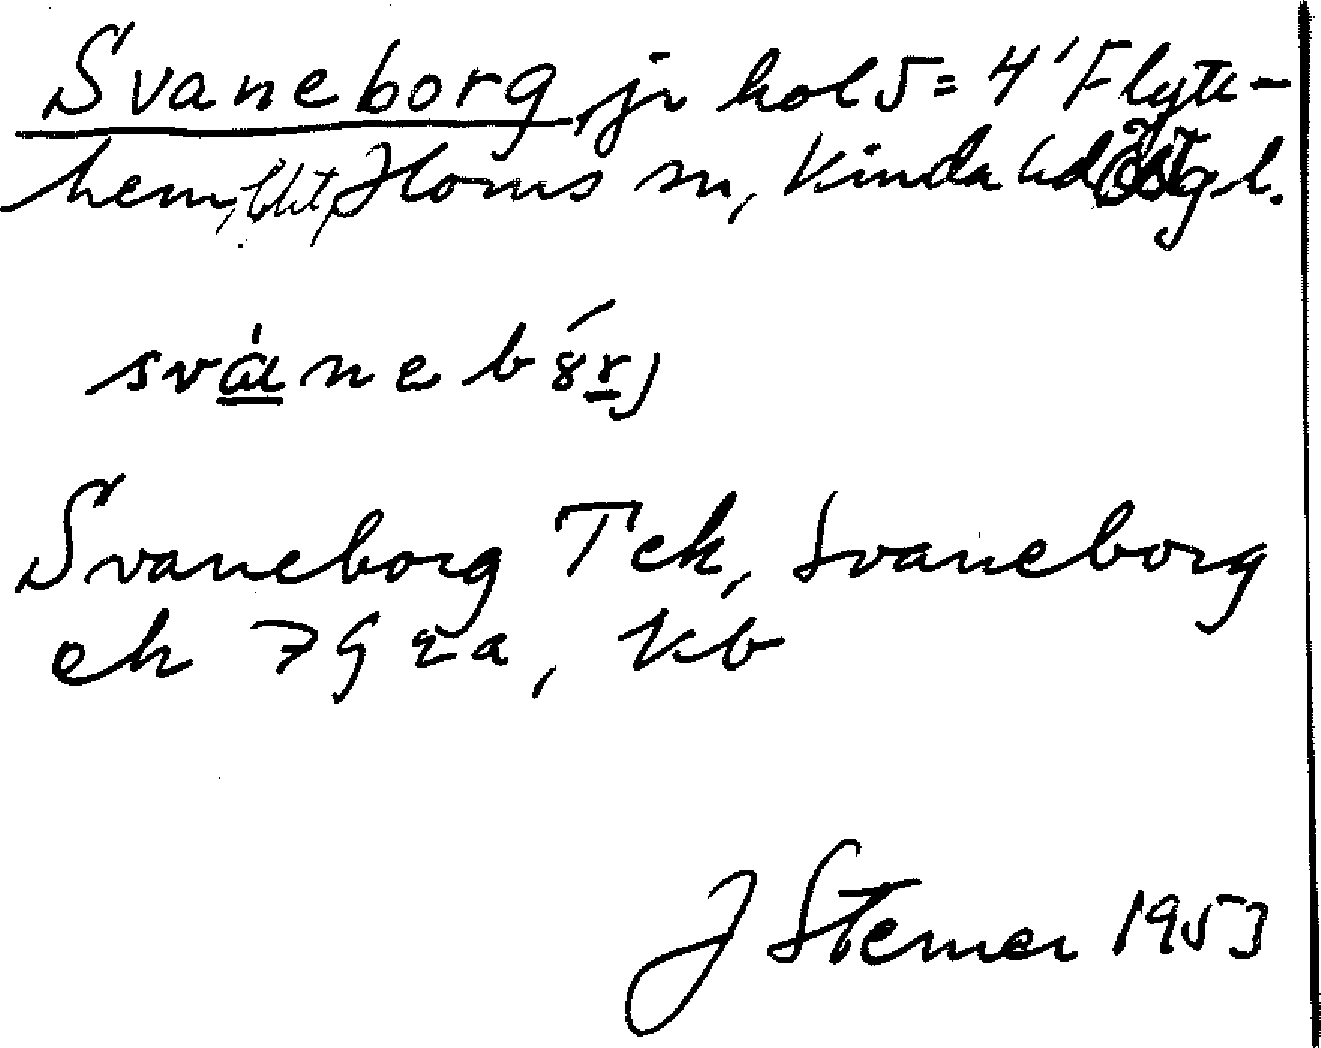 Svaneborg, jr kol 5 = 4' Flytte-
hem, bht, Horns sn, Kinda hd Östgl.
sváneb́8rj
Svaneborg Tek, Svaneborg
ek 7 9 2a, kb
J Sterner 1953